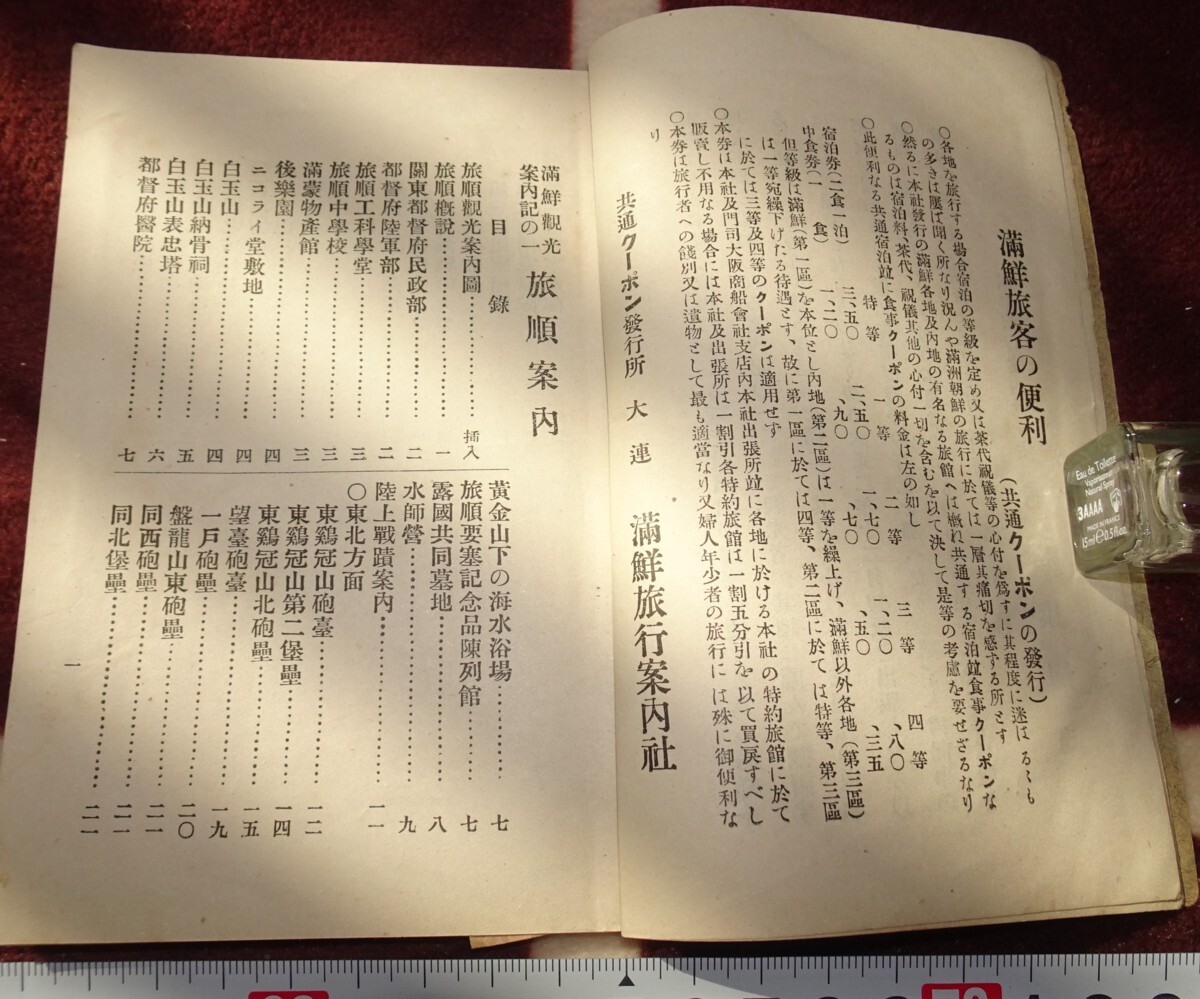 滿鮮旅客の便利
(共通クーポンの發行)
○各地を旅行する場合宿泊の等級を定め又は茶代祝儀等の心付を爲すに其程度に迷はるゝも
の多きは屢ば聞く所なり況んや滿洲朝鮮の旅行に於ては一層其痛切を感する所とす
○然るに本社發行の滿鮮各地及內地の有名なる旅館へは槪ね共通する宿泊竝食事クーポンな
るものは宿泊料、茶代、祝儀其他の心付一切を含むを以て決して是等の考慮を要せざるなり
○此便利なる共通宿泊竝に食事クーポンの料金は左の如し
特等 一等 二等 三等 四等
宿泊券(二食一泊) 三、五〇 二、五〇 一、七〇 一、二〇 、八〇
中食券(一食) 一、二〇 、九〇 、七〇 、五〇 、三五
但等級は滿鮮(第一區)を本位とし內地(第二區)は一等を繰上げ、滿鮮以外各地(第三區)
は一等宛繰下げたる待遇とす、故に第一區に於ては四等、第二區に於ては特等、第三區
に於ては三等及四等のクーポンは適用せず
○本券は本社及門司大阪商船會社支店內本社出張所竝に各地に於ける本社の特約旅館に於て
販賣し不用なる場合には本社及出張所は一割引各特約旅館は一割五分引を以て買戾すべし
○本券は旅行者への餞別又は遺物として最も適當なり又婦人年少者の旅行には殊に御便利な
り
共通クーポン發行所 大連 滿鮮旅行案內社
滿鮮觀光
案內記の一
旅順案內
目錄
旅順觀光案內圖 揷入
旅順槪說 一
關東都督府民政部 二
都督府陸軍部 二
旅順工科學堂 三
旅順中學校 三
滿蒙物產館 三
後樂園 四
ニコライ堂敷地 四
白玉山 四
白玉山納骨祠 五
白玉山表忠塔 六
都督府醫院 七
黃金山下の海水浴場 七
旅順要塞記念品陳列館 七
露國共同墓地 八
水師營 九
陸上戰蹟案內 一一
○東北方面
東鷄冠山砲臺 一二
東鷄冠山第二堡壘 一四
東鷄冠山北砲壘 一五
望臺砲臺 一九
一戶砲壘 二〇
盤龍山東砲壘 二一
同西砲壘 二一
同北堡壘 二一
一
Eau de Toilette
Vaporisateur
Natural Spray
3AAAA
MADE IN FRANCE
15ml e 0.5fl.oz